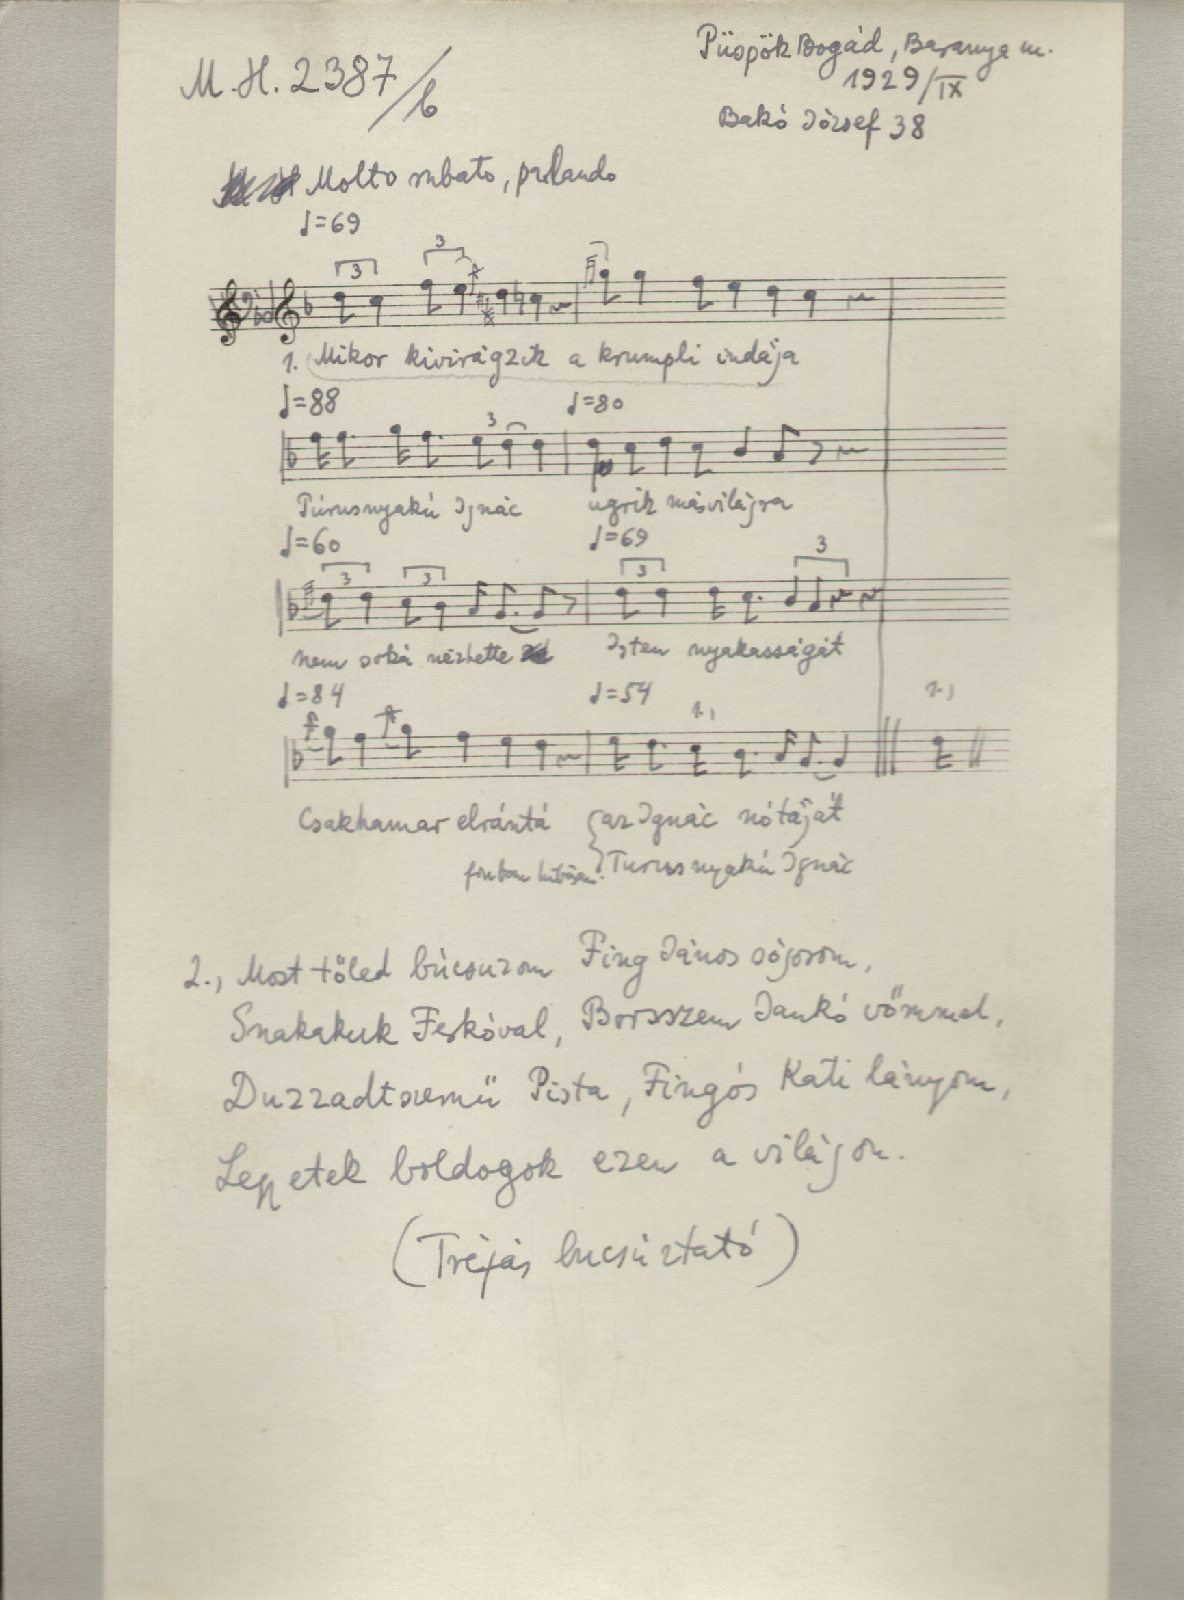 M.H. 2387/b
Püspök Bogád, Baranya m.
1929/IX
Bakó József 38
Molto rubato, parlando
♩=69
3 3
1. Mikor kivirágzik a krumpli indája
♩=88 ♩=80
3
Púrusnyakú Ignác ugrik másvilágra
♩=60 ♩=69
3 3 3 3
nem soká nézhette Isten nyakasságát
♩=84 ♩=54 1., 2.,
Csakhamar elrántá az Ignác nótáját
Turusnyakú Ignác
2., Most tőled búcsuzom Fing János sógorom,
Snakakuk Ferkóval, Borsszem Jankó vőmmel,
Duzzadtszemű Pista, Fingós Kati lányom,
Legyetek boldogok ezen a világon.
(Tréfás bucsúztató)